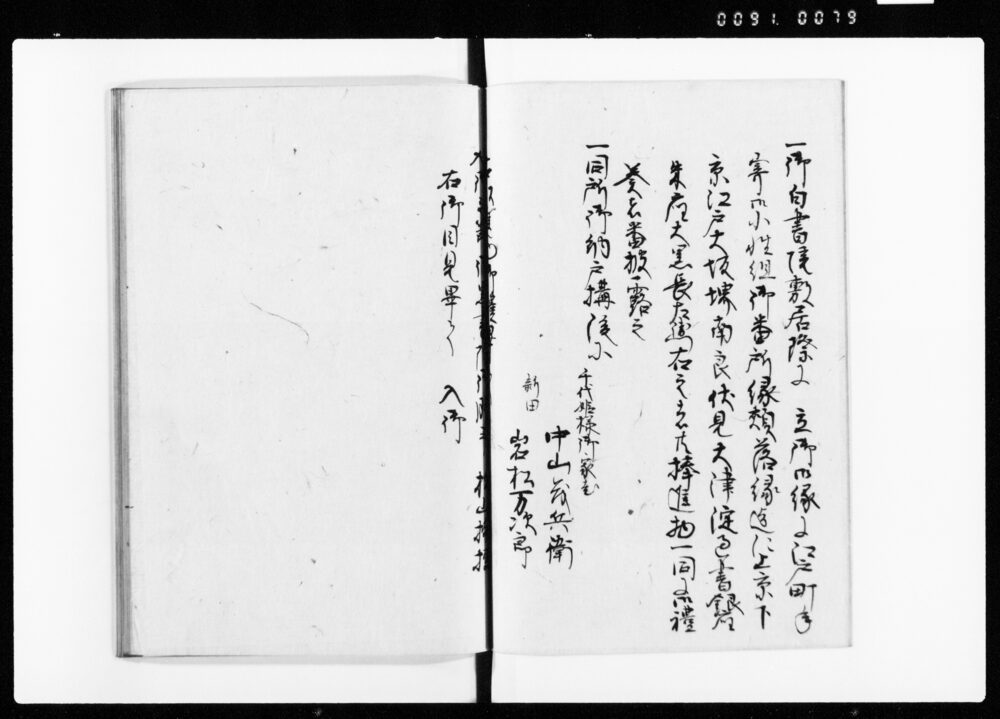 0091.0079
一御白書院敷居際ニ 立御御縁ニ江戸町年
寄御小性組御番所縁頬落縁迄ニ上京下
京江戸大坂堺南良伏見大津淀過書銀座
朱座大黒長左衛門右之者共捧進物一同ニ御礼
奏者番披露之
一同所御納戸構後ニ
千代姫様御家老
中山茂兵衛
新田
岩松万次郎
右御目見畢而 入御